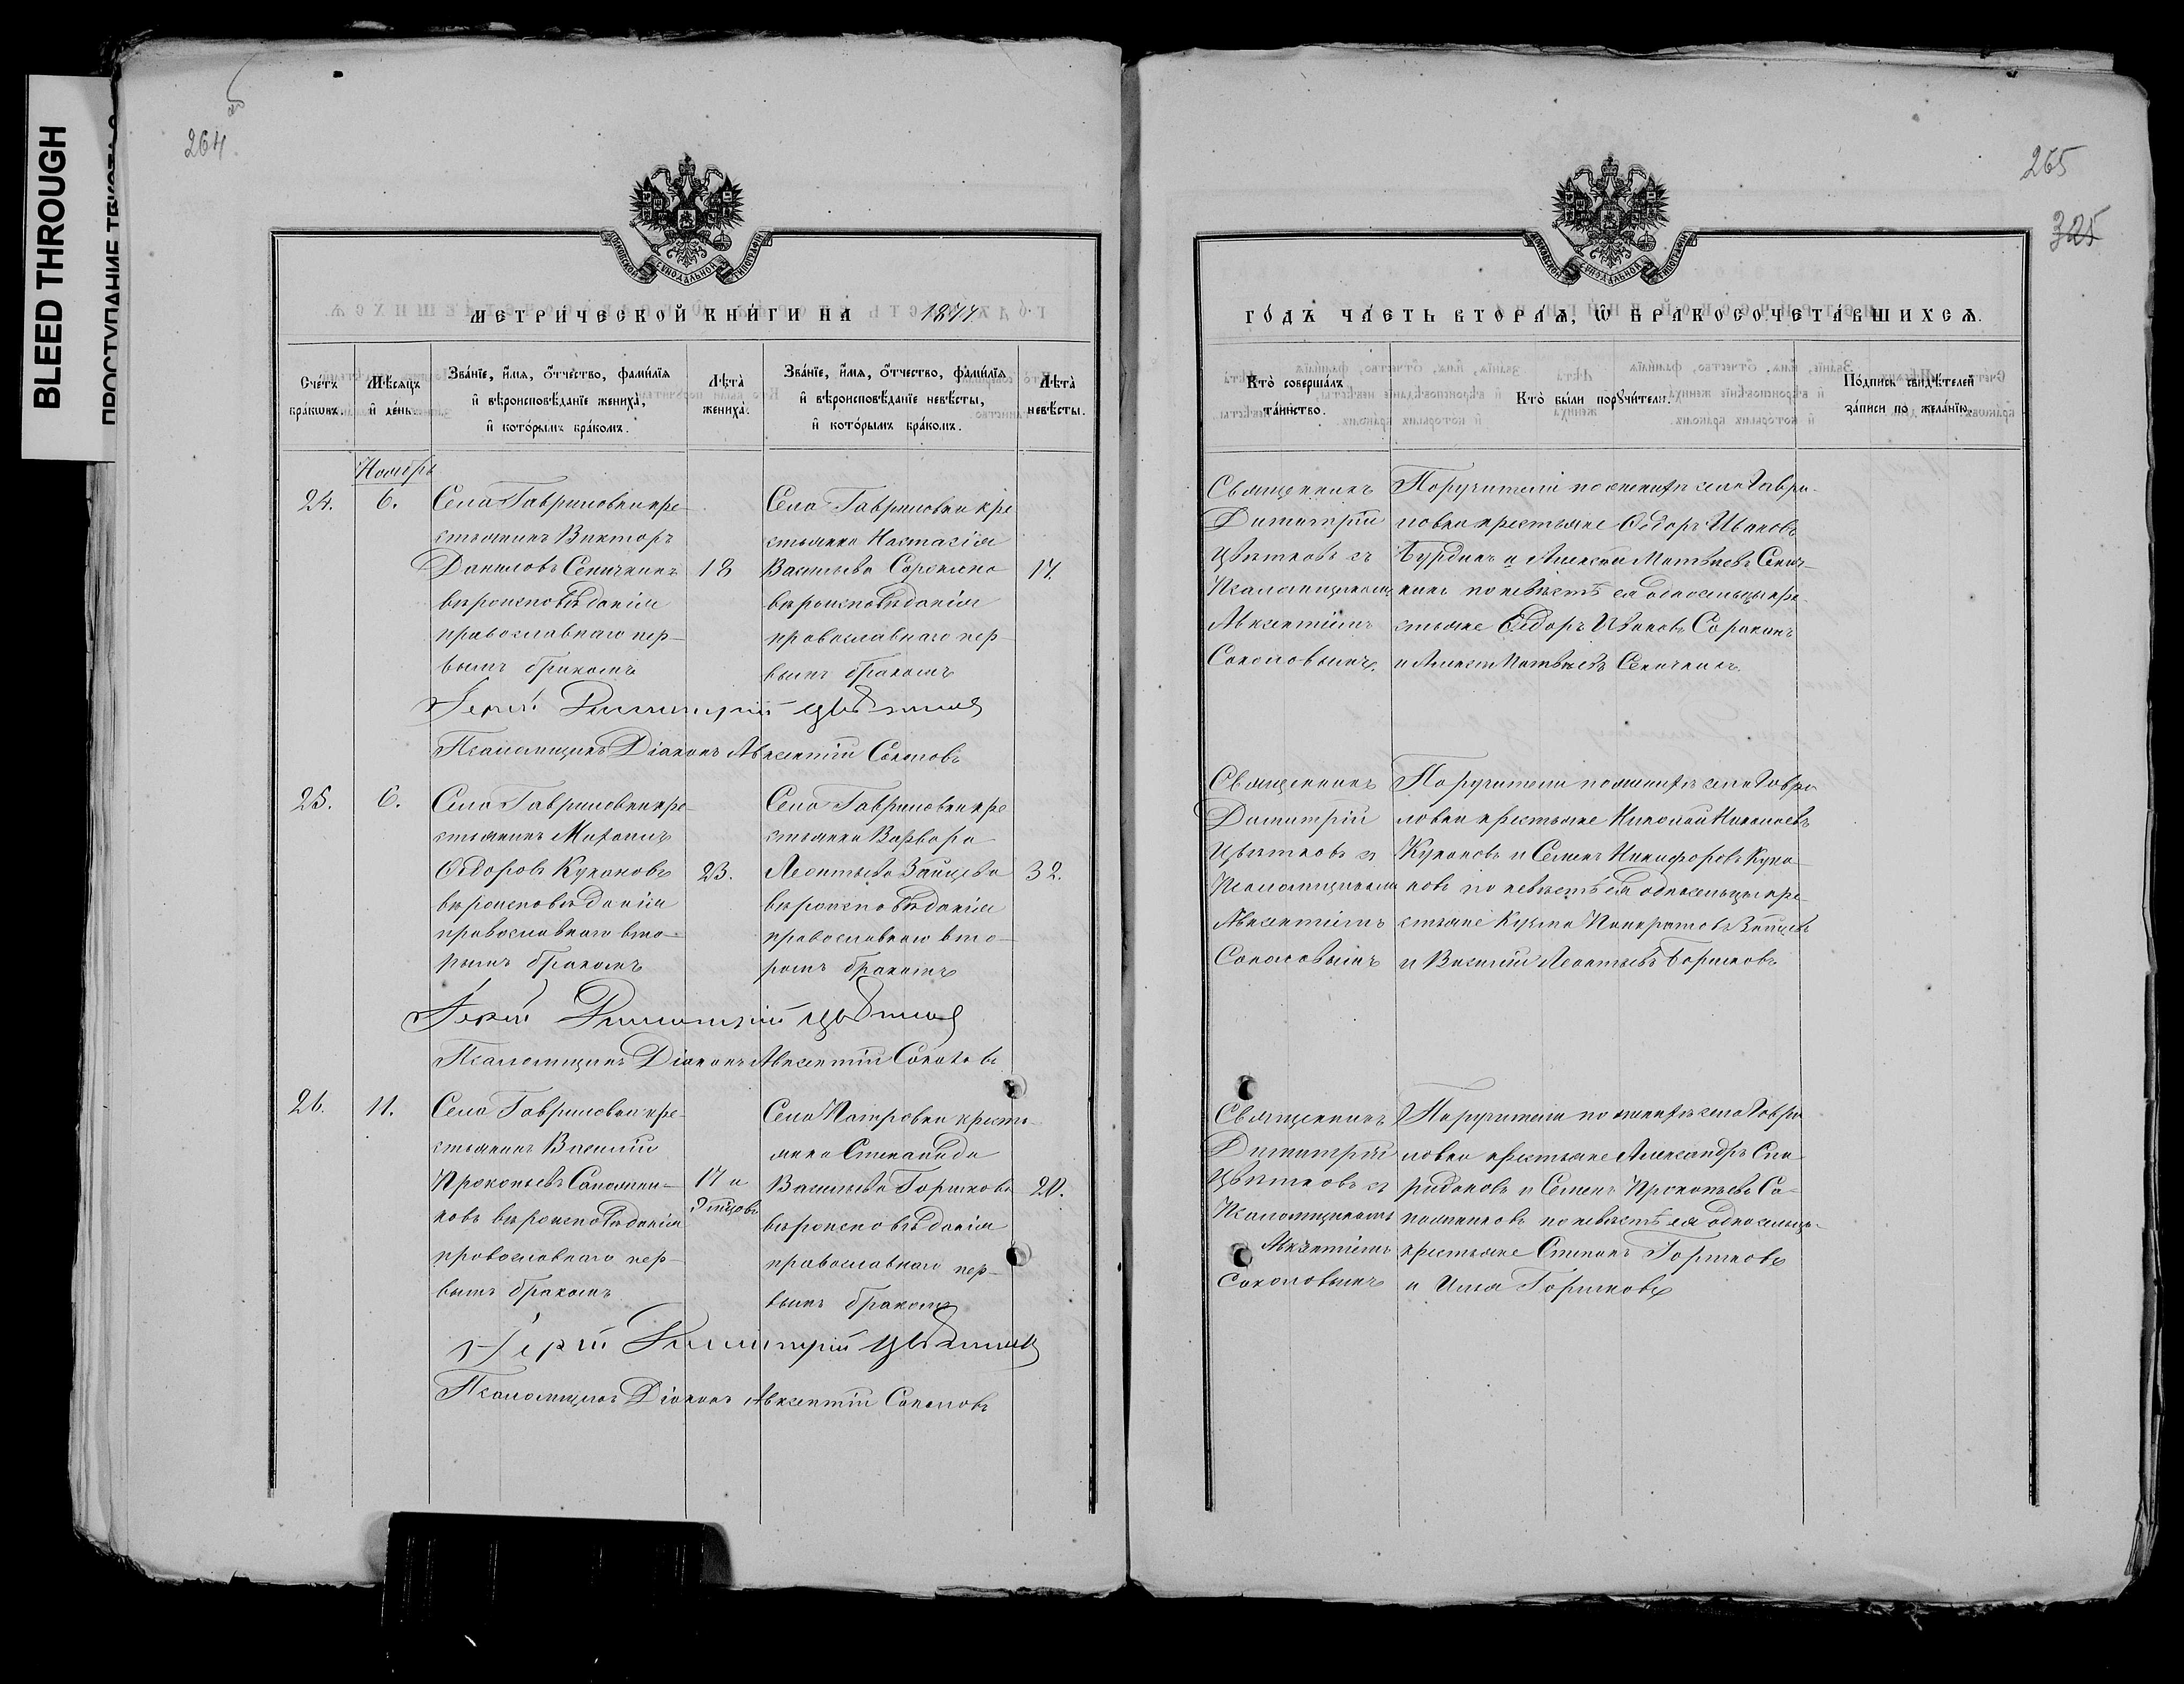 BLEED THROUGH
ПРОСТУПАНИЕ ТЕКСТА
264
об
МОСКОВСКОЙ СѴНОДАЛЬНОЙ ТИПОГРАФІИ
МЕТРИЧЕСКОЙ КНИГИ НА 1877
Счетъ браковъ.
Мѣсяцъ и день.
Званіе, имя, отчество, фамилія
и вѣроисповѣданіе жениха,
и которымъ бракомъ.
Лѣта жениха.
Званіе, имя, отчество, фамилія
и вѣроисповѣданіе невѣсты,
и которымъ бракомъ.
Лѣта невѣсты.
Ноябрь
24.
6.
Села Гавриловки кре-
стьянинъ Викторъ
Даниловъ Сеничкинъ
вѣроисповѣданія
православнаго пер-
вымъ бракомъ
18
Села Гавриловки кре
стьянка Настасія
Васильева Сорокина
вѣроисповѣданія
православнаго пер-
вымъ бракомъ
17.
Іерей Димитрій Цвѣтковъ
Псаломщикъ Діаконъ Авксентій Соколовъ
25.
6.
Села Гавриловки кре-
стьянинъ Михаилъ
Ѳедоровъ Кукановъ
вѣроисповѣданія
православнаго вто-
рымъ бракомъ
23.
Села Гавриловки кре
стьянка Варвара
Леонтьева Зайцева
вѣроисповѣданія
православнаго вто-
рымъ бракомъ
32.
Іерей Димитрій Цвѣтковъ
Псаломщикъ Діаконъ Авксентій Соколовъ
26.
11.
Села Гавриловки кре-
стьянинъ Василій
Прокопьевъ
вѣроисповѣданія
православнаго пер-
вымъ бракомъ
17 и
Села Патровки кресть-
янка Степанида
Васильева Горшкова
вѣроисповѣданія
православнаго пер-
вымъ бракомъ
20.
Іерей Димитрій Цвѣтковъ
Псаломщикъ Діаконъ Авксентій Соколовъ
265
325
МОСКОВСКОЙ СѴНОДАЛЬНОЙ ТИПОГРАФІИ
ГОДЪ ЧАСТЬ ВТОРАЯ, Ѡ БРАКОСОЧЕТАВШИХСЯ.
Кто совершалъ таинство.
Кто были поручители.
Подпись свидѣтелей записи по желанію.
Священникъ
Димитрій
Цвѣтковъ съ
Псаломщикомъ
Авксентіемъ
Соколовымъ.
Поручители по женихѣ села Гаври-
ловки крестьяне Ѳедоръ Ивановъ
Бурдинъ и Алексѣй Матвѣевъ Сенич-
кинъ по невѣстѣ ея односельцы кре-
стьяне Ѳедоръ Ивановъ Сорокинъ
и Алексѣй Матвѣевъ Сеничкинъ.
Священникъ
Димитрій
Цвѣтковъ съ
Псаломщикомъ
Авксентіемъ
Соколовымъ
Поручители по женихѣ села Гаври
ловки крестьяне Николай Николаевъ
Кукановъ и Семенъ Никифоровъ Кука-
новъ по невѣстѣ ея односельцы кре-
стьяне Кузьма Панкратовъ Зайцевъ
и Василій Леонтьевъ Борисковъ.
Священникъ
Димитрій
Цвѣтковъ съ
Псаломщикомъ
Авксентіемъ
Соколовымъ
Поручители по женихѣ села Гаври
ловки крестьяне Александръ Спи-
ридоновъ и Семенъ Прокопьевъ
по невѣстѣ ея односельцы
крестьяне Степанъ Горшковъ
и Илья Горшковъ